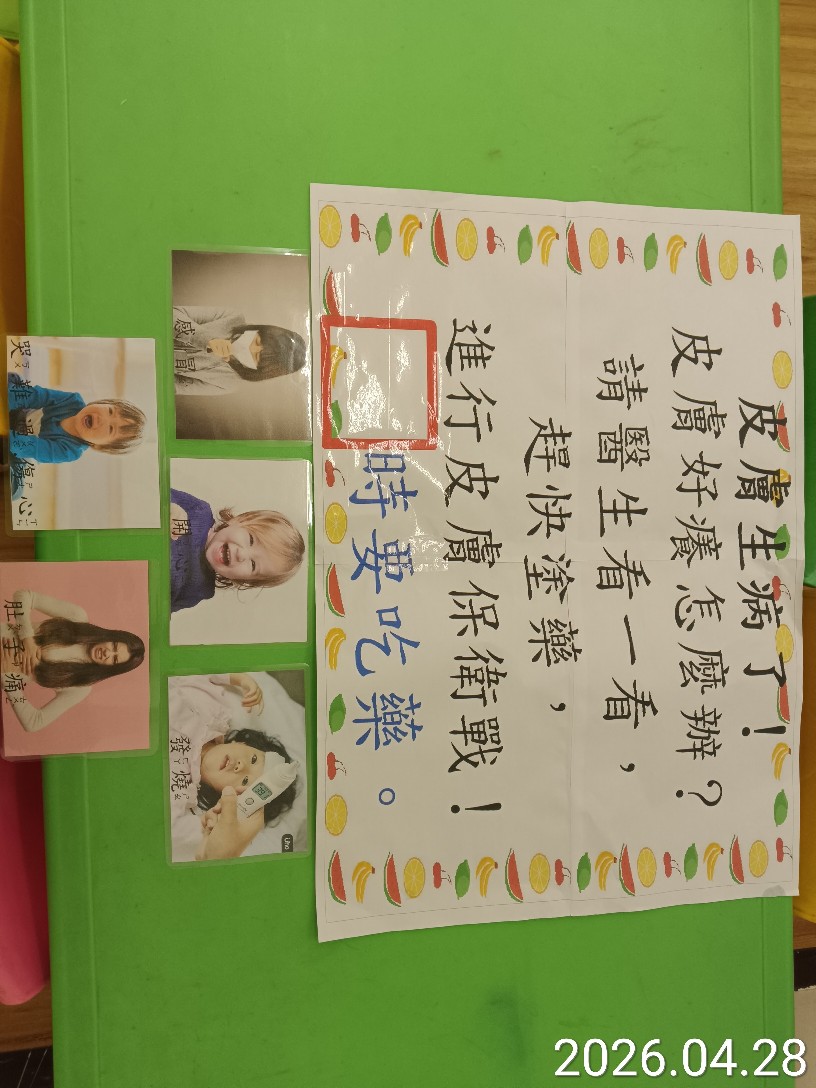 皮膚生病了！
皮膚好癢怎麼辦？
請醫生看一看，
趕快塗藥，
進行皮膚保衛戰！
時要吃藥。
感冒
開心
發燒
Uho
哭 難過 傷心
肚子痛
2026.04.28